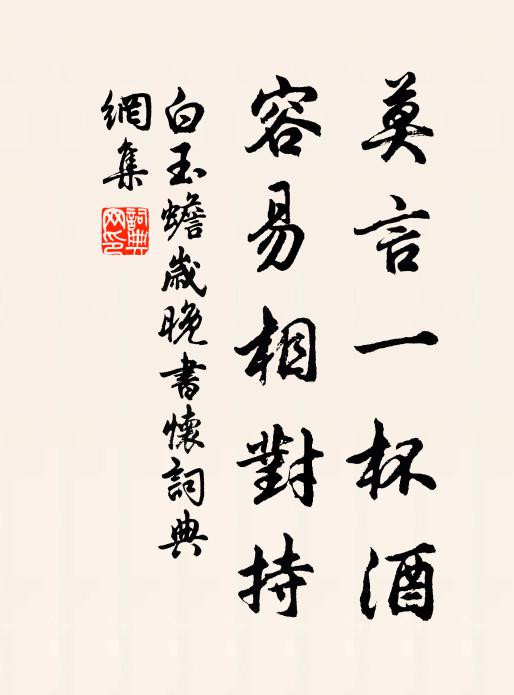 莫言一杯酒
容易相對持
白玉蟾歲晚書懷詞典
網集
詞典網印